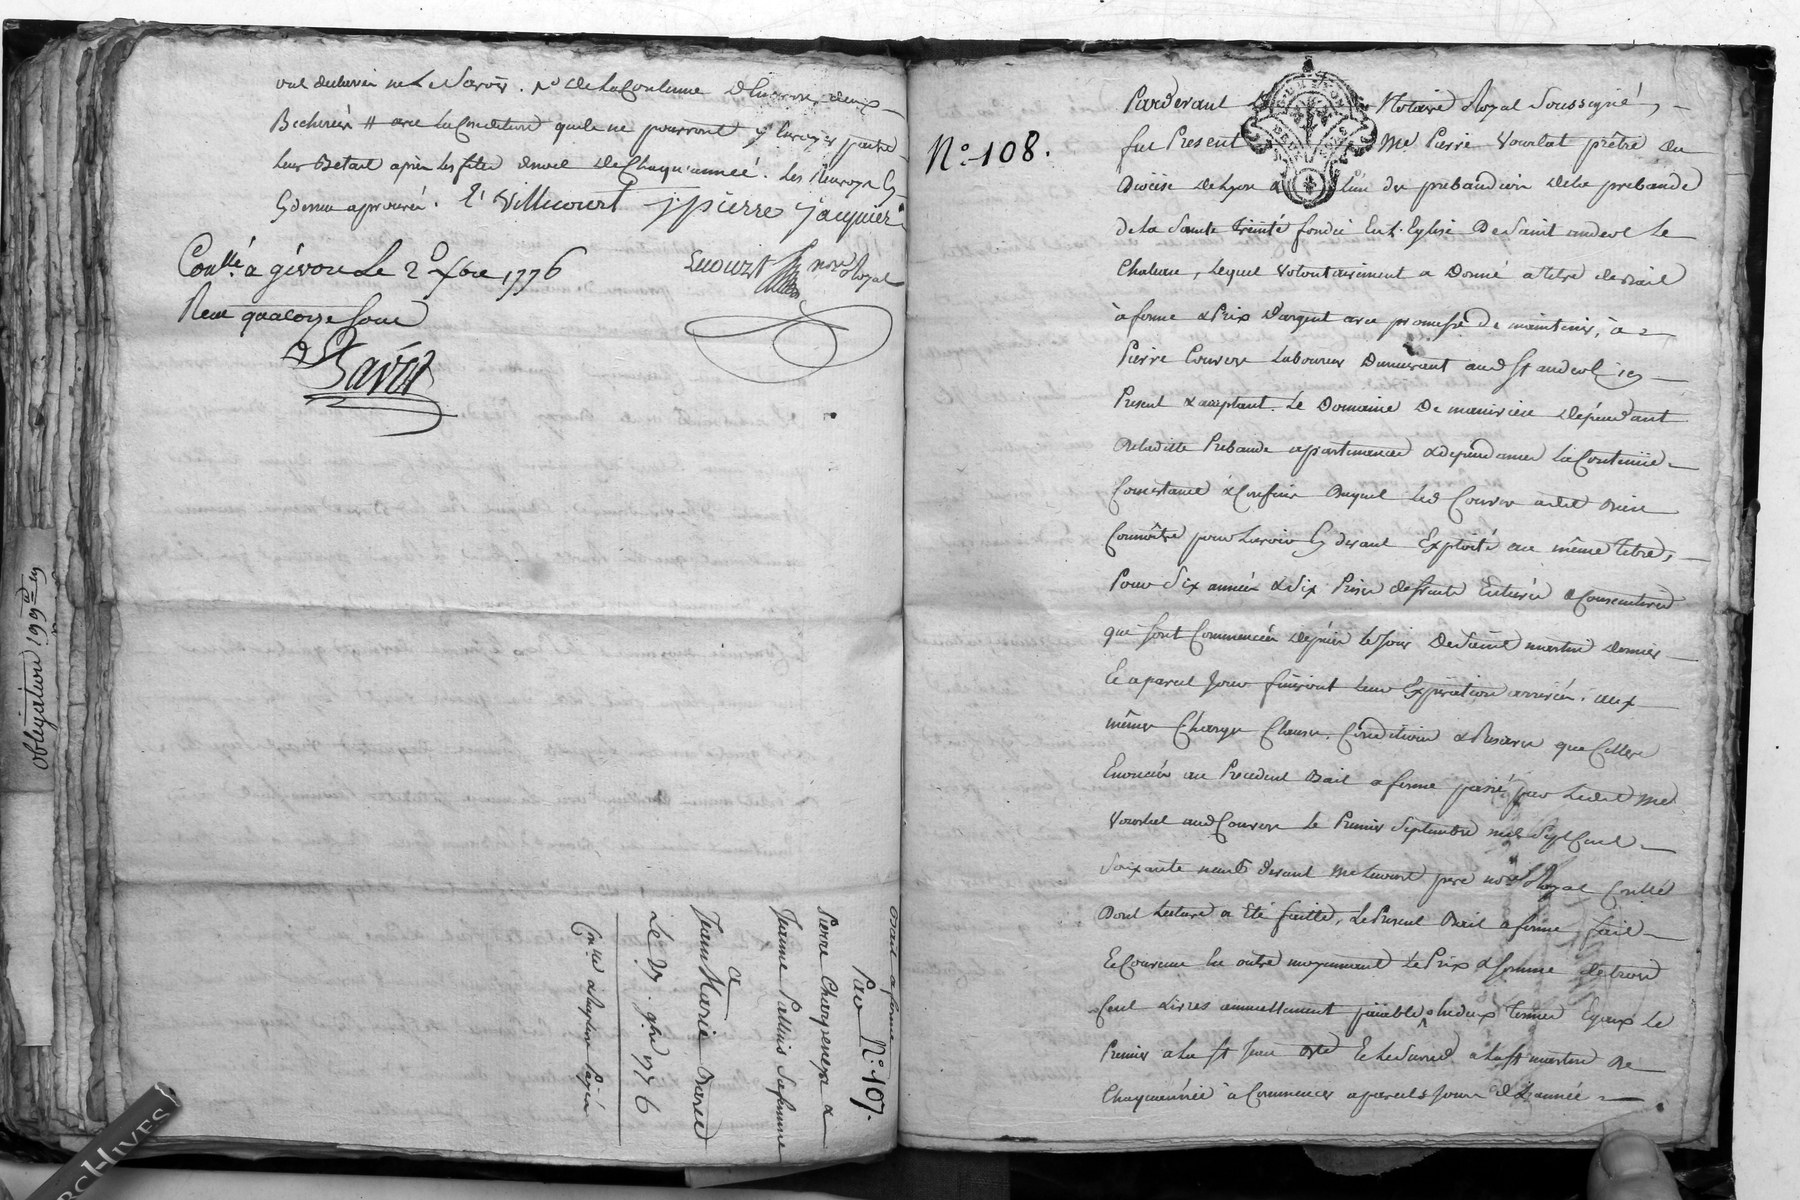 ne Le Savoir. de la Coutume d'hiverner deux
Bechereés # avec la Condition qu'ils ne pourront y
leur Betail après les fêtes de noel de Chaqu'année. les Renvoys Cy
Cy dessus aprouvés. Villicourt j pierre jaquier
Conllé a givors Le 2d Xbre 1776
Reçu quatorze sous
nore Royal
Bail a ferme
Par N°. 107.
Pierre Charpenay &
Jeanne Pallius sa femme
a
Jean Marie
Le 27. 9bre 1776
obligation 199
ARCHIVES
N°. 108.
Pardevant Notaire Royal Soussigné,
fut Present Me. Pierre Vourlat prêtre du
Diocèse de Lyon l'un des prebandiers de la prebande
de la Sainte Trinité fondée En L'Eglise De Saint andeol Le
Chateau, Lequel Volontairement a Donné a titre de bail
à ferme & Prix D'argent avec promesse de maintenir, à
Pierre Couron Laboureur Demeurant aud St andeol icy
Present & acceptant. Le Domaine De manicieu Dépendant
De laditte Prebande apartenances & dependances la Contenüe
Consistance & Confins Duquel led Couron a dit Bien
Connoître pour L'avoir Cy devant Exploité au même titre,
Pour Six années & Six Prises de fruits Entieres & Consecutives
qui sont Commencées depuis le Jour De Saint martin dernier
Et a pareil Jour finiront leur Expiration arrivée. aux
mêmes Charges Clauses Conditions & Reserves que Celles
Enoncées au Precedent Bail a ferme passé par Ledit Me
Vourlat aud Couron le Premier Septembre mil Sept Cent
Soixante neuf devant Me pere nore Royal Conllé
Dont Lecture a Eté faitte, Le Present Bail a ferme fait
Et Convenu En outre moyennant le Prix & Somme de trois
Cent Livres annuellement païable a deux Termes Egaux le
Premier a la St Jean Bte Et le Second a la St martin De
Chaqu'année à Commencer a pareils Jours de L'année